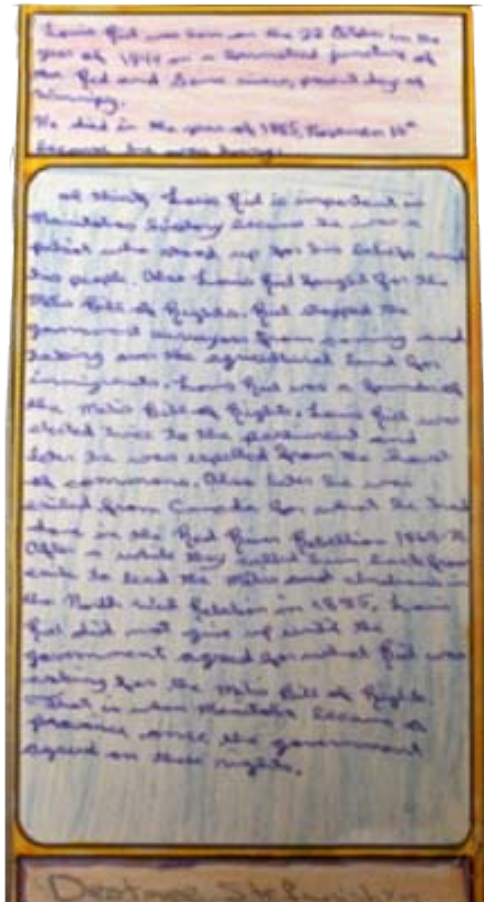 Louis Riel was born on the 22 October in the
year of 1844 on a junction of
the Red and Seine rivers, present day of
Winnipeg.
He died in the year of 1885, November 16th
because he was hung.
I think Louis Riel is important in
Manitobas history because he was a
patriot who stood up for his beliefs and
his people. Also Louis Riel fought for the
Métis Bill of Rights. Riel stopped the
government surveyors from coming and
taking over the agricultural land for
immigrants. Louis Riel was a founder of
the Métis Bill of Rights. Louis Riel was
elected twice to the parliment and
later he was expelled from the House
of commons. Also later he was
exiled from Canada for what he had
done in the Red River Rebellion 1869-70
After a while they called him back from
exile to lead the Métis and in
the North West Rebelion in 1885. Louis
Riel did not give up until the
government agreed for what Riel was
asking for the Métis Bill of Rights.
That is when Manitoba became a
province once the government
agreed on these rights.